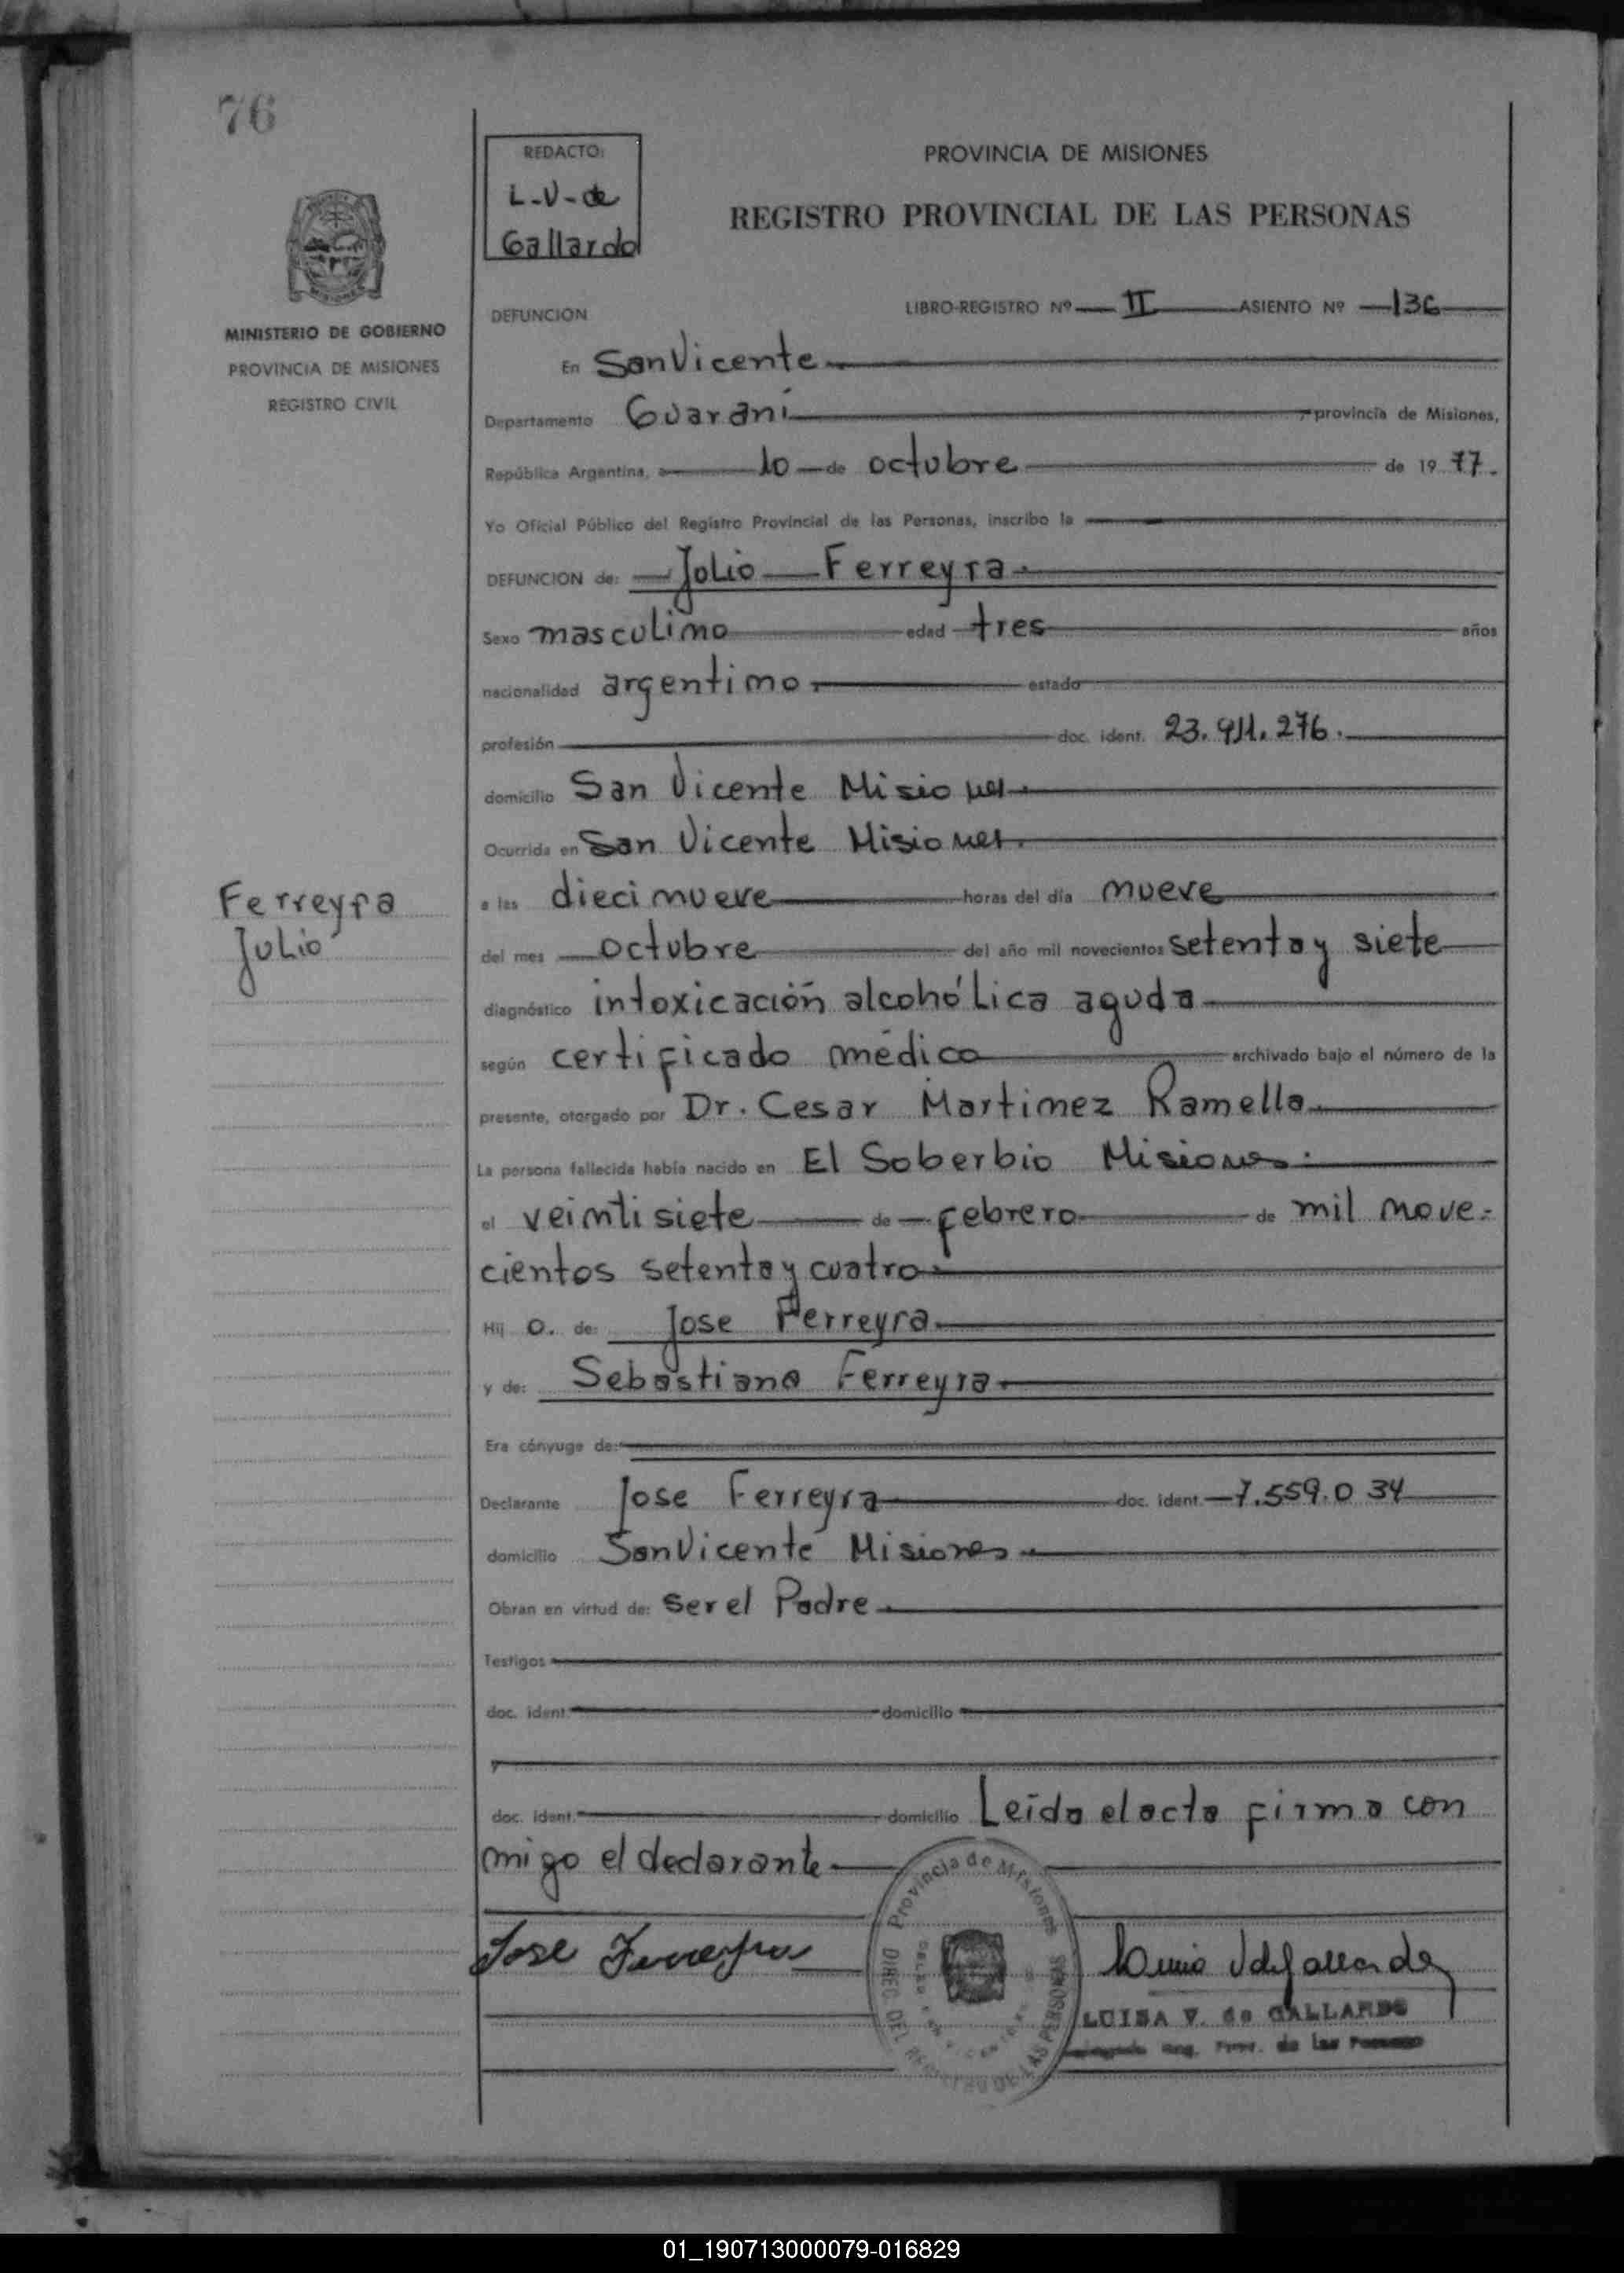 76
REDACTO:
L-V-de
Gallardo
PROVINCIA DE MISIONES
REGISTRO PROVINCIAL DE LAS PERSONAS
MINISTERIO DE GOBIERNO
PROVINCIA DE MISIONES
REGISTRO CIVIL
DEFUNCION LIBRO-REGISTRO Nº II ASIENTO Nº 136
En San Vicente
Departamento Guaraní provincia de Misiones,
República Argentina, a 10 de octubre de 19 77.
Yo Oficial Público del Registro Provincial de las Personas, inscribo la
DEFUNCION de: Julio Ferreyra.
Sexo masculino edad tres años
nacionalidad argentino. estado
profesión doc. ident. 23.911.276.
domicilio San Vicente Misiones.
Ocurrida en San Vicente Misiones.
Ferreyra
Julio
a las diecinueve horas del día nueve
del mes octubre del año mil novecientos setenta y siete
diagnóstico intoxicación alcohólica aguda
según certificado médico archivado bajo el número de la
presente, otorgado por Dr. Cesar Martinez Ramella.
La persona fallecida había nacido en El Soberbio Misiones.
el veintisiete de febrero de mil nove-
cientos setenta y cuatro.
Hij o. de: Jose Ferreyra.
y de: Sebastiana Ferreyra.
Era cónyuge de:
Declarante Jose Ferreyra doc. ident. 7.559.034
domicilio San Vicente Misiones.
Obran en virtud de: ser el Padre.
Testigos
doc. ident. domicilio
y
doc. ident. domicilio Leída el acta firma con
migo el declarante
Jose Ferreyra
Provincia de Misiones
DIREC. DEL REGISTRO DE LAS PERSONAS
LUISA V. de GALLARDO
Prov. de las Personas
01_190713000079-016829